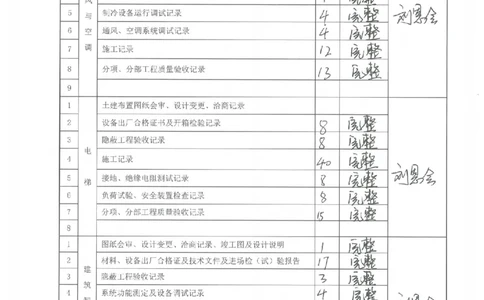 风
5 制冷设备运行调试记录 4 完整 刘恩会
与
6 通风、空调系统调试记录 4 完整
空
7 施工记录 12 完整
调
8 分项、分部工程质量验收记录 13 完整
9
1 土建布置图纸会审、设计变更、洽商记录
2 设备出厂合格证书及开箱检验记录 8 完整
3 隐蔽工程验收记录 8 完整
电
4 施工记录 40 完整
梯
5 接地、绝缘电阻测试记录 8 完整 刘恩会
6 负荷试验、安全装置检查记录 8 完整
7 分项、分部工程质量验收记录 15 完整
8
1 图纸会审、设计变更、洽商记录、竣工图及设计说明 1 完整
2 材料、设备出厂合格证及技术文件及进场检（试）验报告 17 完整
建
3 隐蔽工程验收记录 3 完整
筑
4 系统功能测定及设备调试记录 4 完整